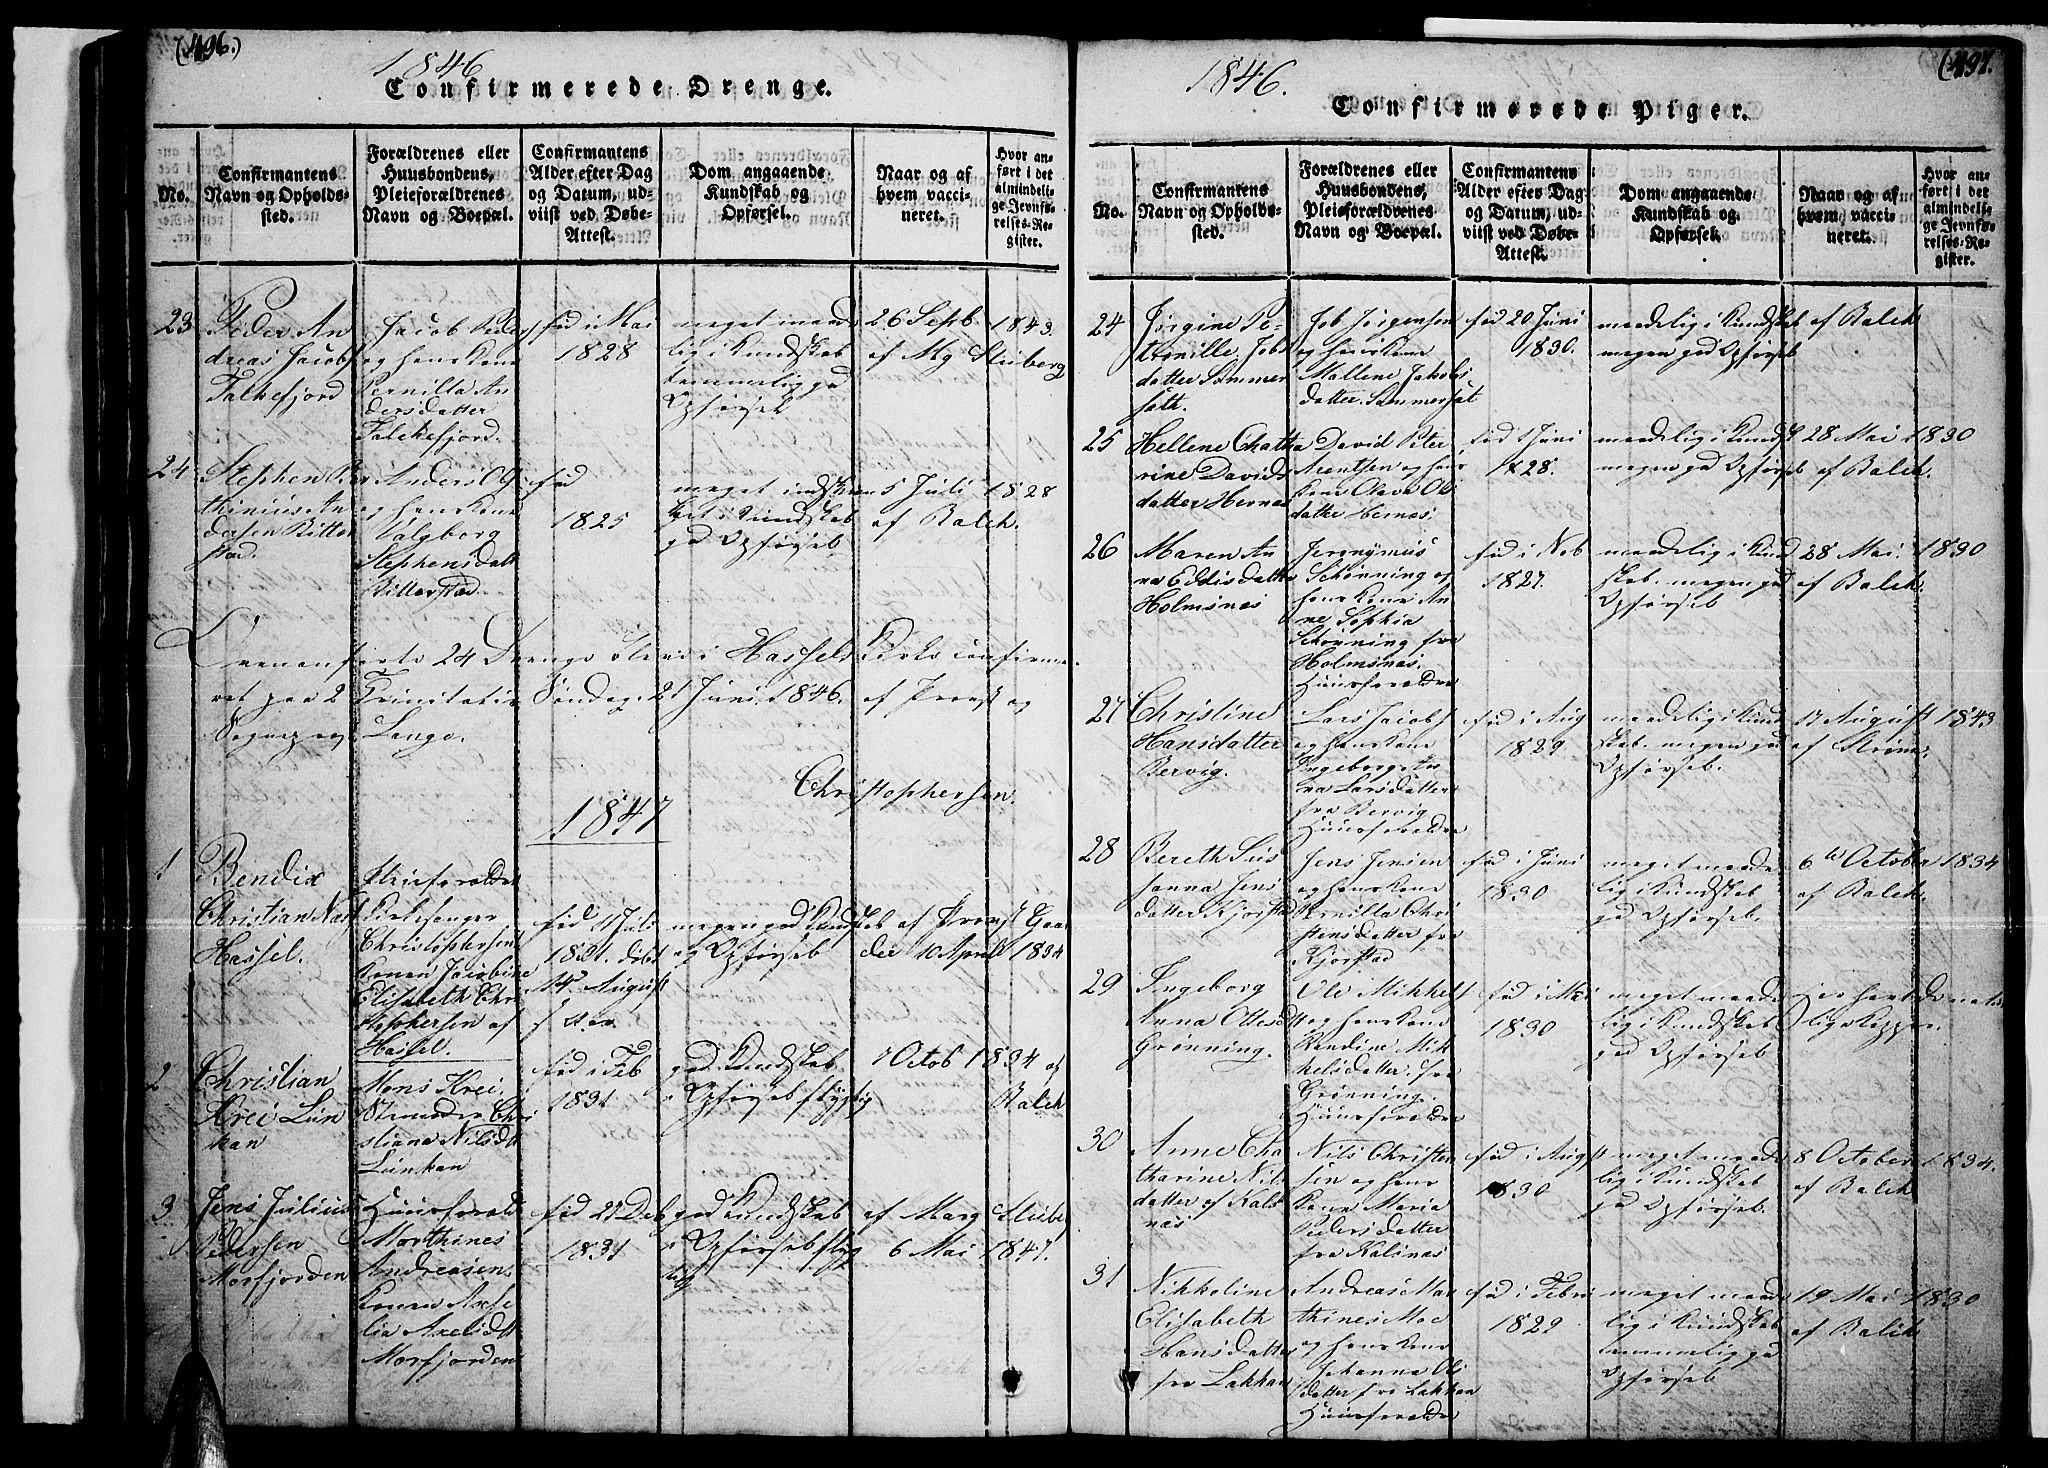 (496.)
1846
Confirmerede Drenge.
No.
Confirmantens
Navn og Opholds-
sted.
Forældrenes eller
Huusbondens,
Pleieforældrenes
Navn og Boepæl.
Confirmantens
Alder efter Dag
og Datum, ud-
viist ved Døbe-
Attest.
Dom angaaende
Kundskab og
Opførsel.
Naar og af
hvem vacci-
neret.
Hvor an-
ført i det
almindeli-
ge Jevnfø-
relses-Re-
gister.
23
Peder An
dreas Jacobs
Falkefjord
Jacob Peders
og hans Kone
Pernilla An
dersdatter
Falckefjord.
fød i Mai
1828
meget maade
lig i Kundskab
temmelig god
Opførsel
26 Septb 1843.
af Mg Stuberg
24
Stephen Ber
thinius An
dersen Bitter
stad.
Anders Ols
og hans Kone
Valgborg
Stephensdatt
Bitterstad
fød
1825
meget indskræn
ket i Kundskab
god Opførsel
5 Juli 1828
af Balch.
Ovenanførte 24 Drenge bleve i Hassels Kirke confirme
ret paa 2 Trinitatis Søndag 21 Juni 1846. af Provst og
Sogneprest Lange.
Christophersen.
1847
1
Bendix
Christian
Hassel.
Pleieforældre
Kirkesanger
Christophersen
Konen Jacobine
Elisabeth Chri
stophersen af
Hassel.
fød 1 Juli
1831. døbt
14 August
s. A.
megen god Kundskab
og Opførsel
af Provst
den 10 April 1834
2
Christian
Krei Lun
kan
Mons Krei
Christiane Nilsdt
Lunkan
fød i Feb
1831
god Kundskab
Opførsel flygtig
7 Octob 1834 af
Balch
3
Jens Julius
Pedersen
Morfjorden
Huusforældr
Morthines
Andreasen
Konen Axe
lia Axelsdt
Morfjorden
fød 27 Deb
1831
god Kundskab
Opførsel flyg
tig
af Marg Stube
6 Mai 1847.
(497.
1846.
Confirmerede Piger.
No.
Confirmantens
Navn og Opholds-
sted.
Forældrenes eller
Huusbondens,
Pleieforældrenes
Navn og Boepæl.
Confirmantens
Alder efter Dag
og Datum, ud-
viist ved Døbe-
Attest.
Dom angaaende
Kundskab og
Opførsel.
Naar og af
hvem vacci-
neret.
Hvor an-
ført i det
almindeli-
ge Jevnfø-
relses-Re-
gister.
24
Jørgine Pe-
tronille Jobs
datter Sommer
sæth.
Job Jørgensen
og hans Kone
Mallene Jakobs
datter. Sommersæt
fød 20 Juni
1830.
maadelig i Kundskab
megen god Opførsel
af Balch
25
Hellene Chatha
rine Davids
datter Hernes
David Peter
Arentsen og hans
Kone Olava Ols
datter Hernes.
fød 1 Juni
1828.
maadelig i Kundsk
megen god Opførsel
28 Mai 1830
af Balch.
26
Maren An
ne Eddisdatter
Holmsnæs
Jeronymus
Schønning og
hans Kone An
ne Sophia
Schønning fra
Holmsnæs.
Huusforældre
fød i Nob
1827.
maadelig i Kund
skab. megen god
Opførsel
28 Mai. 1830
af Balch.
27
Christine
Hansdatter
Bervig.
Lars Jacobs
og hans Kone
Ingeborg An
na Larsdatter
fra Bervig
Huusforældre
fød i Aug
1829
maadelig i Kund
skab. megen god
Opførsel.
17 August 1843
af Strøm.
28
Bereth Sus
sanna Jens
datter Kjørstad
Jens Jensen
og hans Kone
Pernilla Chri
stensdatter fra
Kjørstad
fød i Juni
1830
meget maade
lig i Kundskab
god Opførsel.
6te October 1834
af Balch.
29
Ingeborg
Anna Ottesdt
Grønning.
Ole Mikkels
og hans Kone
Rendine Mik
kelsdatter. fra
Grønning.
Huusforældre
fød i Mai
1830
meget maade
lig i Kundskab
god Opførsel
har havt de natur
lige Kopper.
30
Anne Cha
tharine Nils
datter af Kals
næs
Nils Christen
sen og hans
Kone Maria
Pedersdatter
fra Kalsnæs
fød i Augst
1830
meget maade
lig i Kundskab
god Opførsel.
8 October 1834.
af Balch
31
Nikkoline
Elisabeth
Hansdatter
fra Lakkan
Andreas Mar
thines Moe
og hans Kone
Johanna Ols
datter fra Lakkan
Huusforældre
fød i Febr
1829
meget maade
lig i Kundskab
temmelig god
Opførsel
19 Mai 1830
af Balch